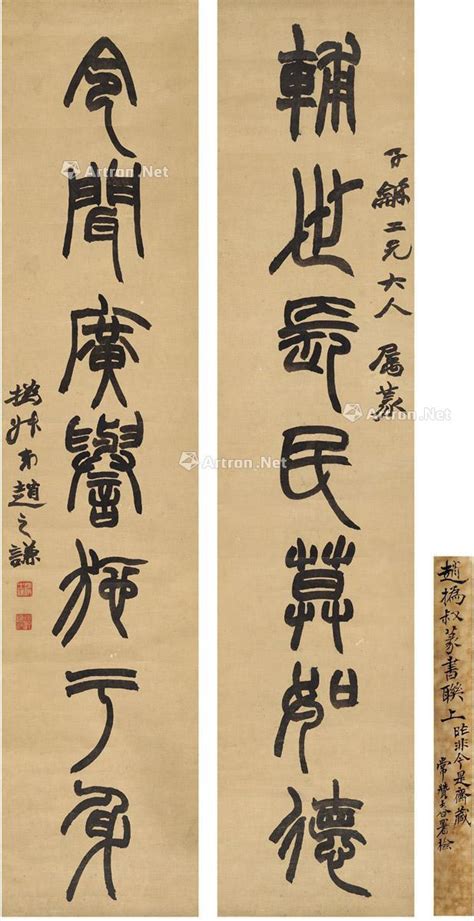 子龢二兄大人屬篆
輔世長民莫如德
令聞廣譽施于身
撝叔弟趙之謙
趙撝叔篆書聯上
昨非今是齋藏
常贊春署檢
Artron.Net
Artron.Net
Artron.Net
Artron.Net
Artron.Net